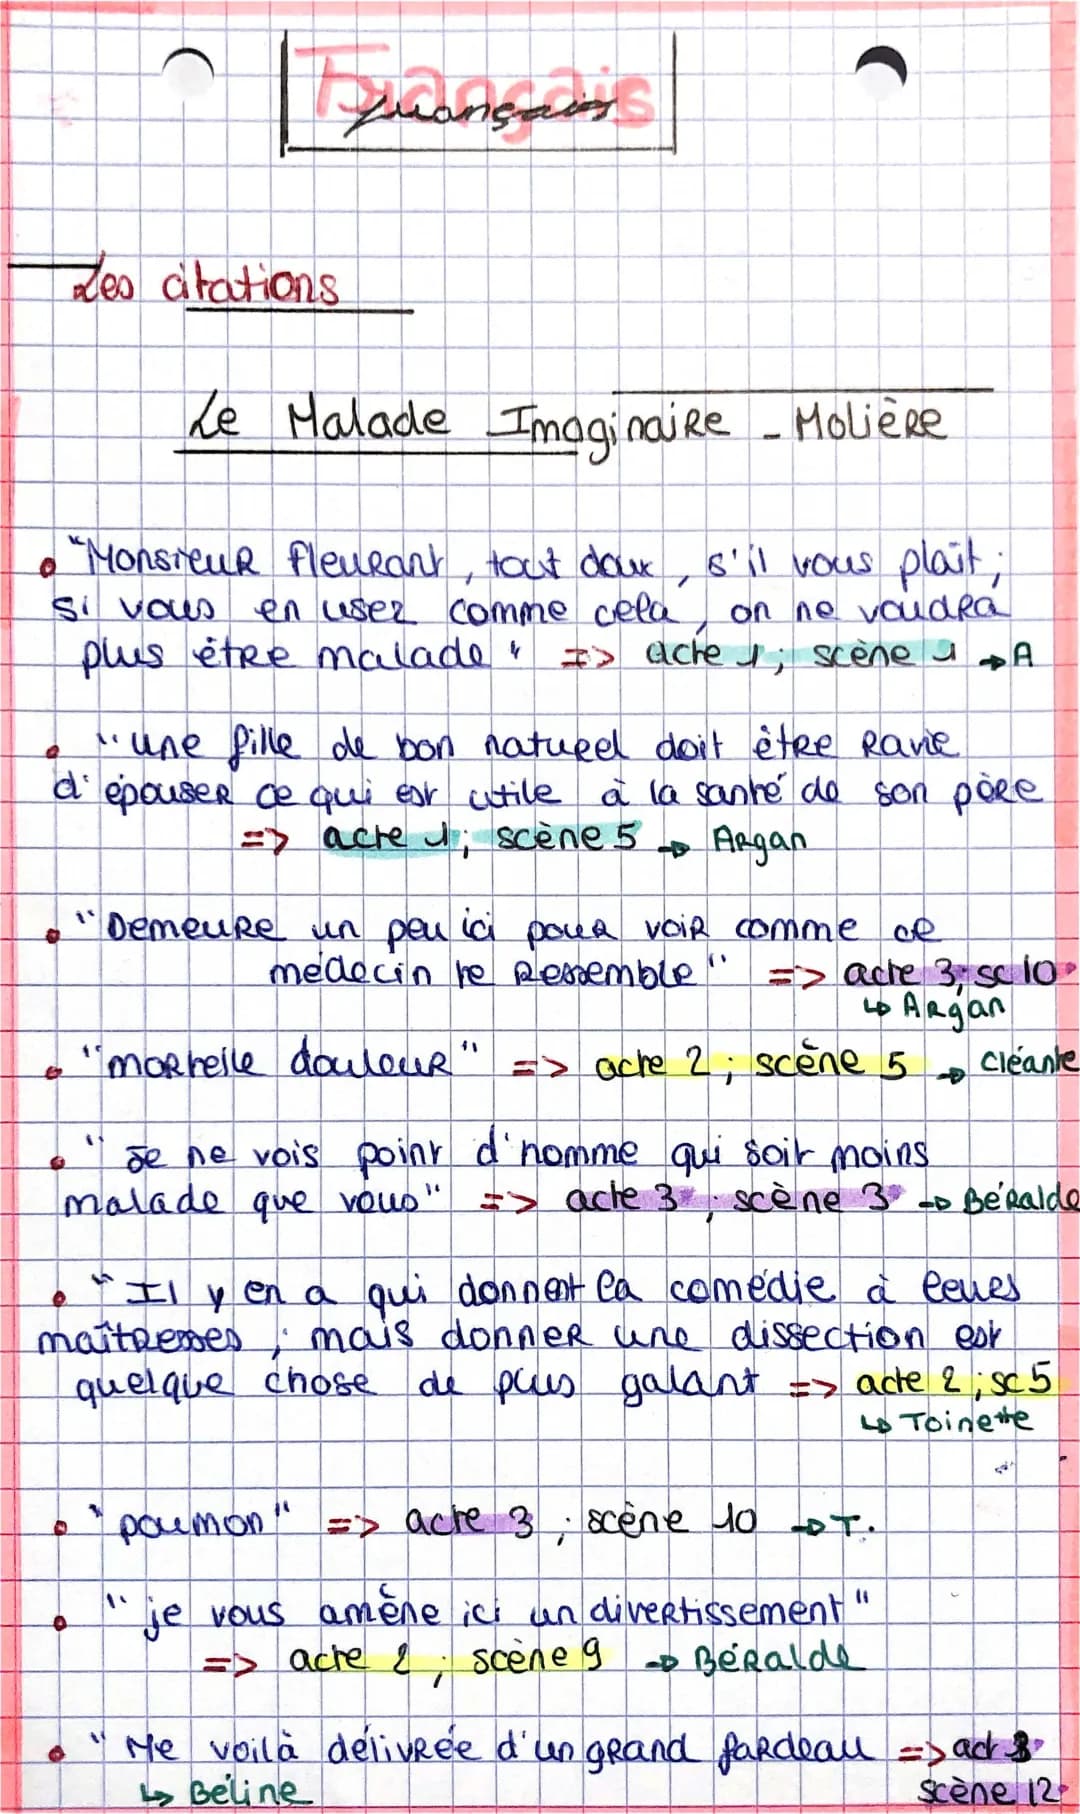 Français
Français
Les citations
Le Malade Imaginaire - Molière
• "Monsieur Fleurant, tout doux, s'il vous plaît ;
si vous en usez comme cela, on ne voudra
plus être malade" => acte 1 ; scène 1 → A
• "une fille de bon naturel doit être ravie
d'épouser ce qui est utile à la santé de son père
=> acte 1 ; scène 5 → Argan
• "Demeure un peu ici pour voir comme ce
médecin te ressemble" => acte 3 ; sc 10
↳ Argan
• "mortelle douleur" => acte 2 ; scène 5 → Cléante
• "Je ne vois point d'homme qui soit moins
malade que vous" => acte 3 ; scène 3 → Béralde
• "Il y en a qui donnent la comédie à leues
maîtresses ; mais donner une dissection est
quelque chose de plus galant => acte 2 ; sc 5
↳ Toinette
• "poumon" => acte 3 ; scène 10 → T.
• "je vous amène ici un divertissement"
=> acte 2 ; scène 9 → Béralde
• "Me voilà délivrée d'un grand fardeau => act 3
↳ Béline scène 12